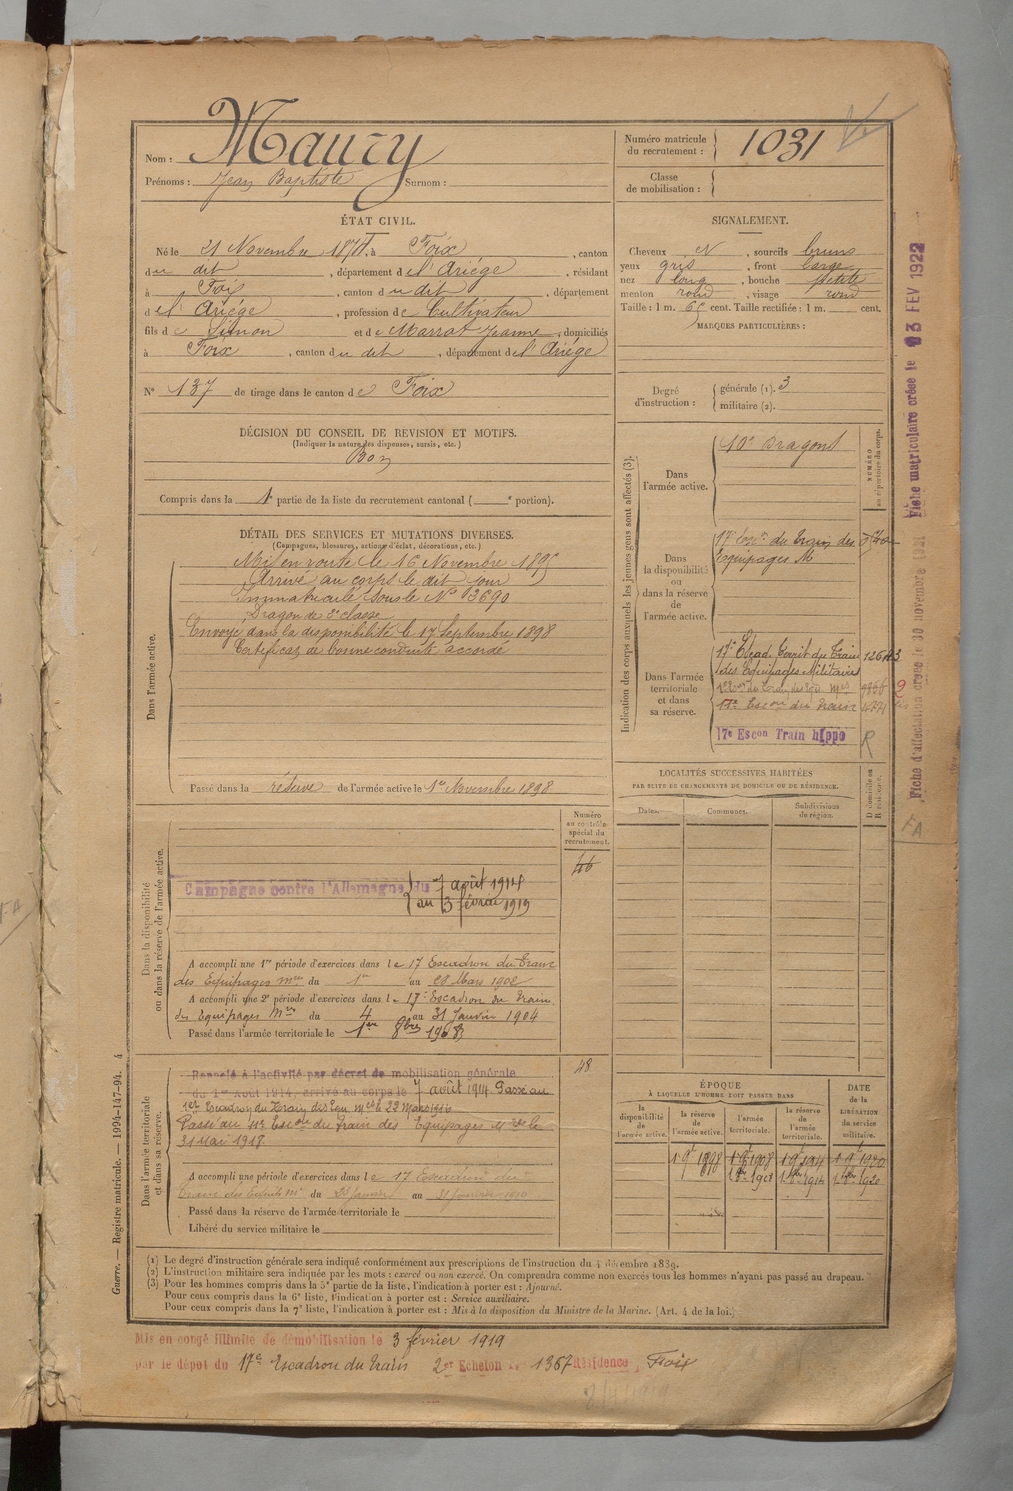 Nom : Maury
Prénoms : Jean Baptiste Surnom :
Numéro matricule du recrutement : 1031
Classe de mobilisation :
ÉTAT CIVIL.
Né le 21 Novembre 1874, à Foix, canton
du dit, département de l'Ariége, résidant
à Foix, canton du dit, département
d l'Ariége, profession de Cultivateur
fils de Simon et de Marrot Jeanne, domiciliés
à Foix, canton du dit, département de l'Ariége
N° 137 de tirage dans le canton de Foix
SIGNALEMENT.
Cheveux N, sourcils bruns
yeux gris, front large
nez long, bouche petite
menton rond, visage rond
Taille : 1 m. 65 cent. Taille rectifiée : 1 m. cent.
MARQUES PARTICULIÈRES :
Degré d'instruction : générale (1). 3
militaire (2).
DÉCISION DU CONSEIL DE REVISION ET MOTIFS.
(Indiquer la nature des dispenses, sursis, etc.)
Bon
Compris dans la 1e partie de la liste du recrutement cantonal ( e portion).
DÉTAIL DES SERVICES ET MUTATIONS DIVERSES.
(Campagnes, blessures, actions d'éclat, décorations, etc.)
Dans l'armée active.
Mis en route le 16 Novembre 1895
Arrivé au corps le dit jour
Immatriculé sous le N° 3690
Dragon de 2e classe
Envoyé dans la disponibilité le 17 Septembre 1898
Certificat de bonne conduite accordé
Passé dans la réserve de l'armée active le 1er Novembre 1898
Indication des corps auxquels les jeunes gens sont affectés (3).
NUMÉRO au répertoire du corps.
Dans l'armée active. 10e Dragons
Dans la disponibilité ou dans la réserve de l'armée active.
17e Escon du train des
Equipages M
Dans l'armée territoriale et dans sa réserve.
17e Escad. Territ du Train
des Equipages Militaires
17e Escon du Train
17e Escon Train hippo
R
LOCALITÉS SUCCESSIVES HABITÉES
PAR SUITE DE CHANGEMENTS DE DOMICILE OU DE RÉSIDENCE.
Dates. Communes. Subdivisions de région. D domicile ou R résidence.
Numéro au contrôle spécial du recrutement.
46
Dans la disponibilité ou dans la réserve de l'armée active.
Campagne contre l'Allemagne du 7 août 1914
au 3 février 1919
A accompli une 1re période d'exercices dans le 17 Escadron du Train
des Equipages Mres du 1er au 28 Mars 1902
A accompli une 2e période d'exercices dans le 17e Escadron du Train
des Equipages Mres du 4 au 31 Janvier 1904
Passé dans l'armée territoriale le 1er 8bre 1908
48
Dans l'armée territoriale et dans sa réserve.
Rappelé à l'activité par décret de mobilisation générale
du 1er Août 1914, arrivé au corps le 7 août 1914 Passé au
1er Escadron du Train des Equ. Mres le 22 Mars 1916
Passé au 4e Escon du Train des Equipages Mres le
31 Mai 1918
A accompli une période d'exercices dans le 17 Escadron du
Passé dans la réserve de l'armée territoriale le
Libéré du service militaire le
ÉPOQUE
À LAQUELLE L'HOMME DOIT PASSER DANS
la disponibilité de l'armée active. la réserve de l'armée active. l'armée territoriale. la réserve de l'armée territoriale. DATE de la LIBÉRATION du service militaire.
(1) Le degré d'instruction générale sera indiqué conformément aux prescriptions de l'instruction du 4 décembre 1889.
(2) L'instruction militaire sera indiquée par les mots : exercé ou non exercé. On comprendra comme non exercés tous les hommes n'ayant pas passé au drapeau.
(3) Pour les hommes compris dans la 5e partie de la liste, l'indication à porter est : Ajourné.
Pour ceux compris dans la 6e liste, l'indication à porter est : Service auxiliaire.
Pour ceux compris dans la 7e liste, l'indication à porter est : Mis à la disposition du Ministre de la Marine. (Art. 4 de la loi.)
Mis en congé illimité de démobilisation le 3 février 1919
par le dépot du 17e Escadron du Train 2er Echelon N° 1367 Résidence, Foix
Guerre. — Registre matricule. — 1994-147-94. 4
Fiche matriculaire créée le 03 FEV 1922
Fiche d'affectation créée le 30 novembre 1921
FA